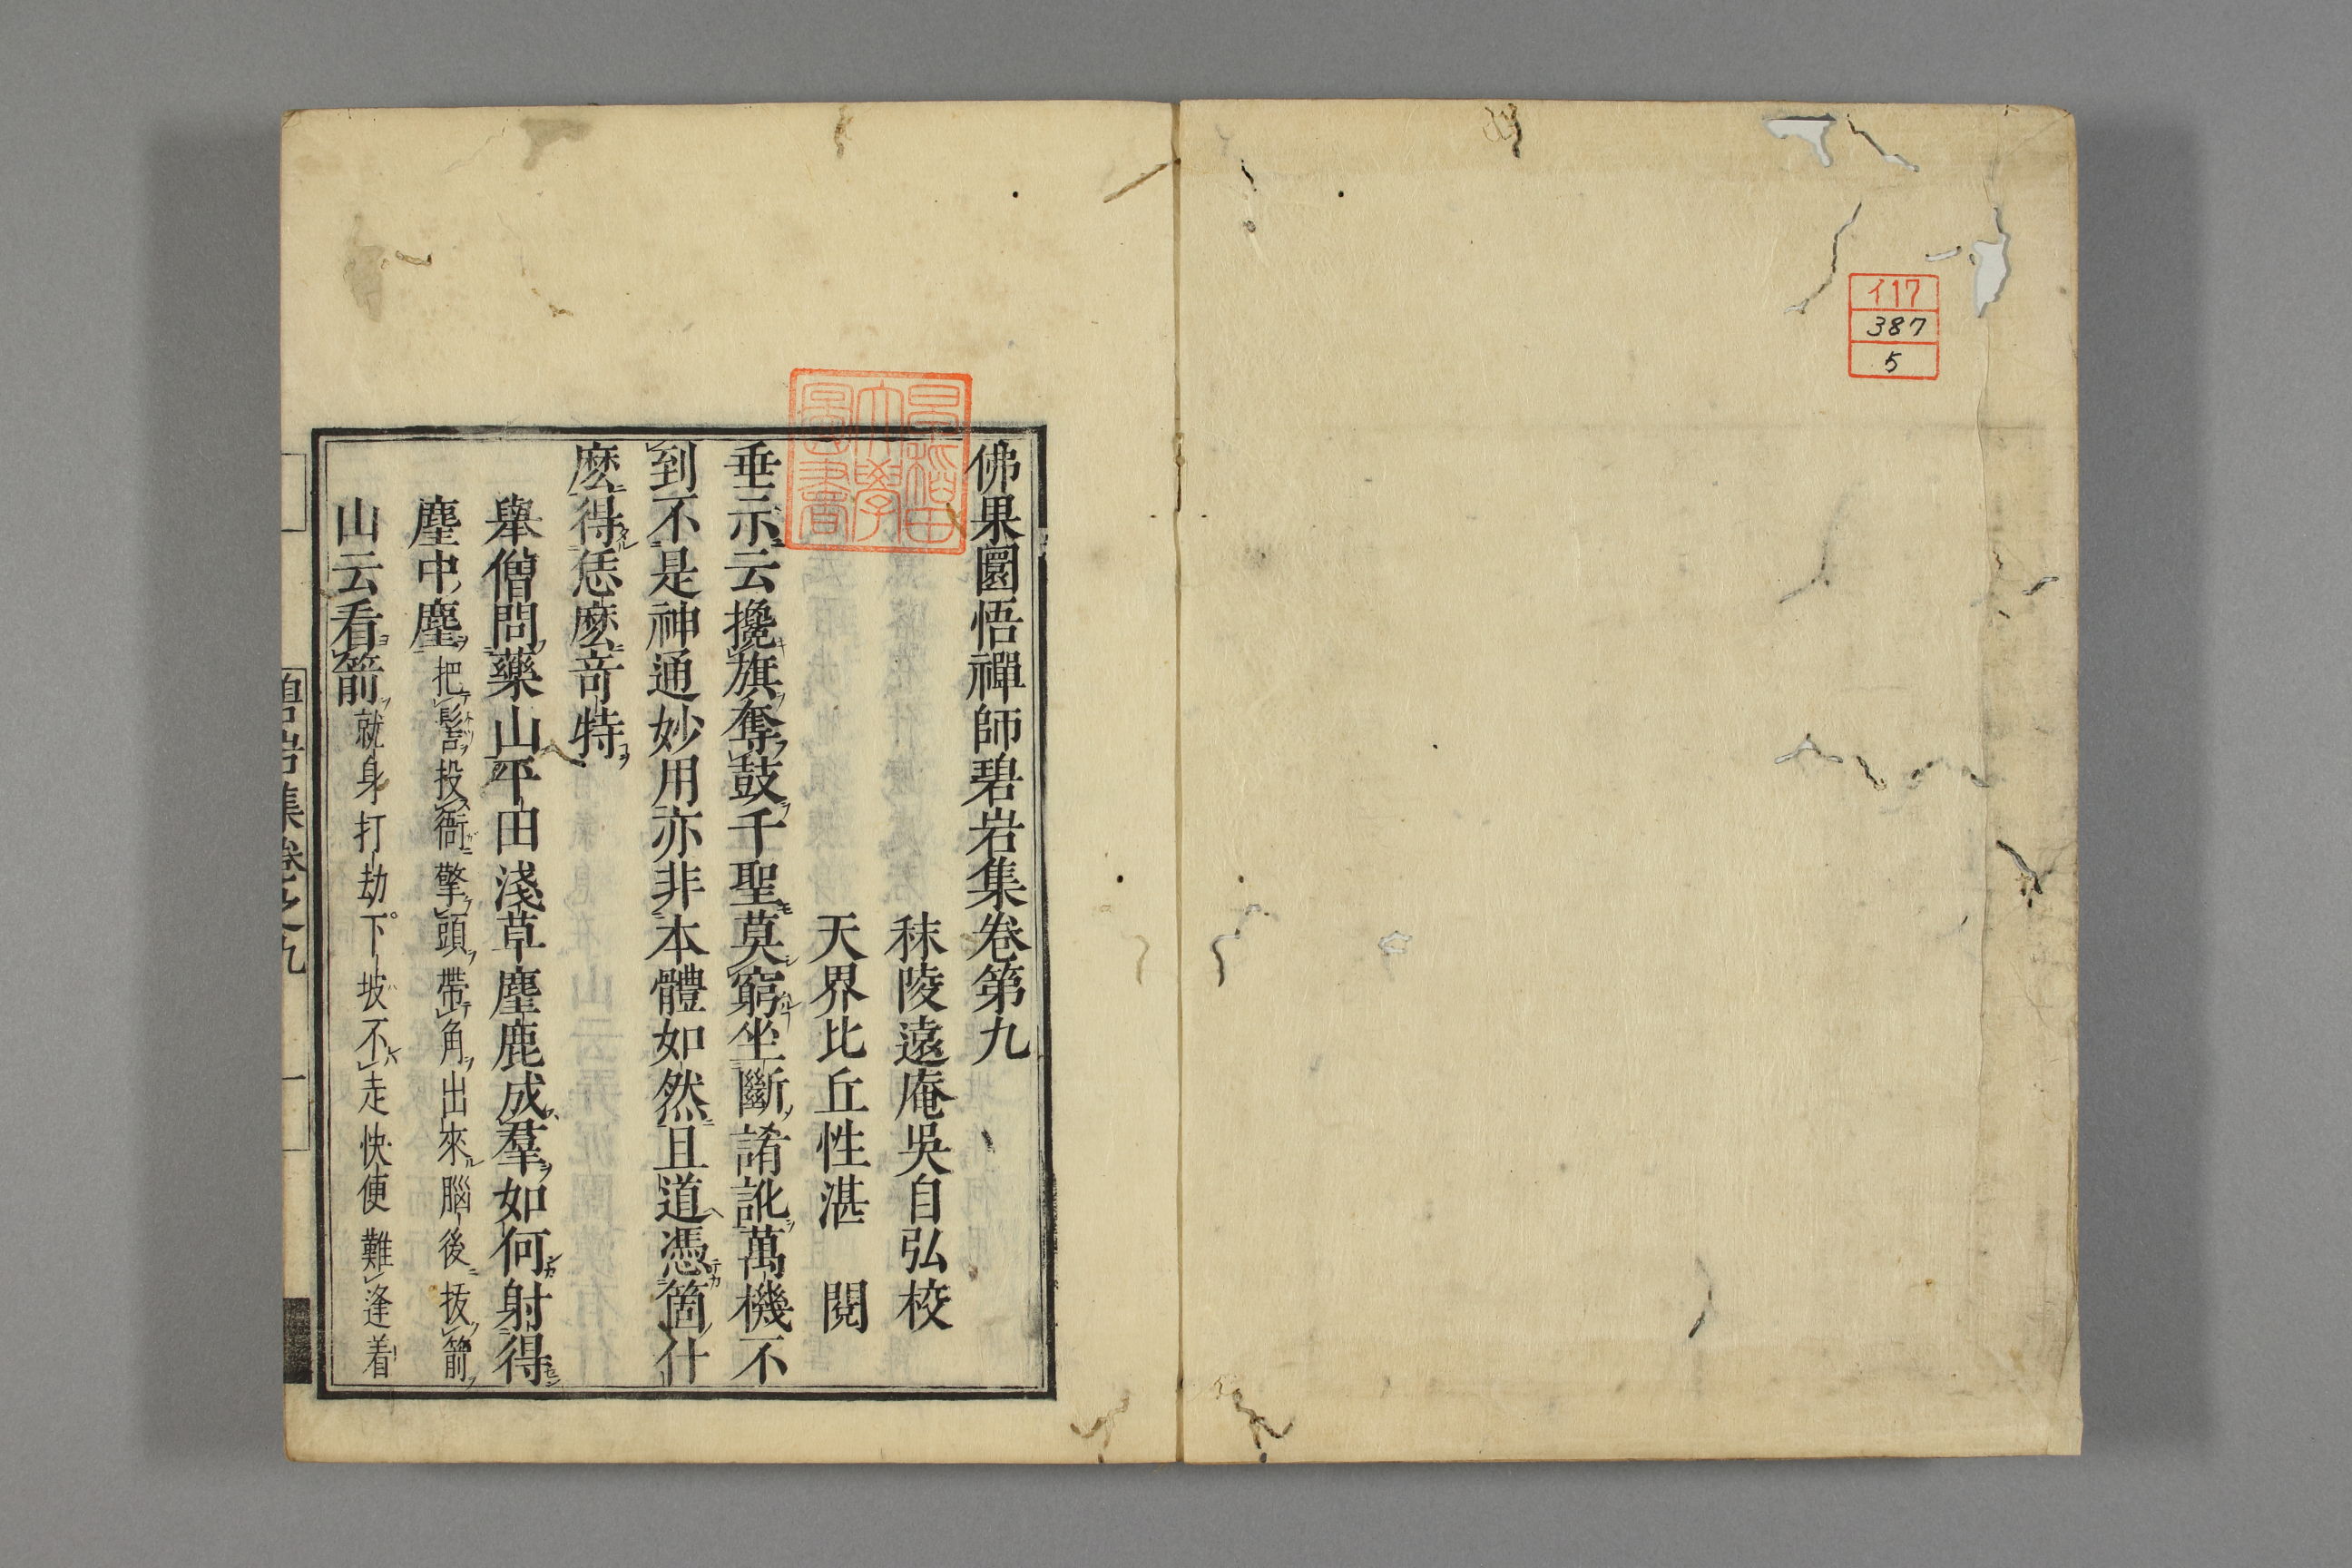 イ17
387
5
早稲田
大學
圖書
佛果圜悟禪師碧岩集卷第九
秣陵遠庵吳自弘校
天界比丘性湛 閱
垂示云攙旗奪鼓千聖莫窮坐斷誵訛萬機不
到不是神通妙用亦非本體如然且道憑箇什
麽得恁麽奇特
舉僧問藥山平田淺草麈鹿成羣如何射得
麈中麈把髻投衙擎頭帶角出來腦後拔箭
山云看箭就身打劫下坡不走快便難逢着
碧岩集卷之九 一